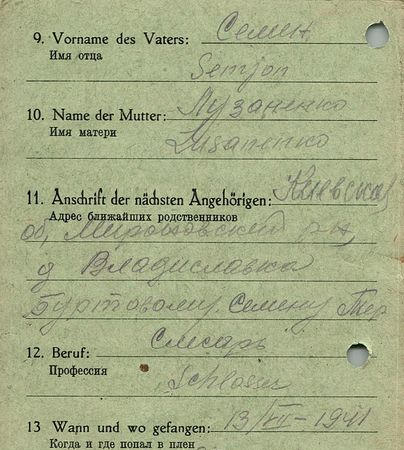 9. Vorname des Vaters: Семен
Имя отца
Semjon
10. Name der Mutter: Лузаненко
Имя матери
Lusanenko
11. Anschrift der nächsten Angehörigen: Киевская
Адрес ближайших родственников
об, Мироновский р-н,
д Владиславка
Буртовому Семену Тер
12. Beruf: Слесарь
Профессия
Schlosser
13 Wann und wo gefangen: 13/VII-1941
Когда и где попал в плен